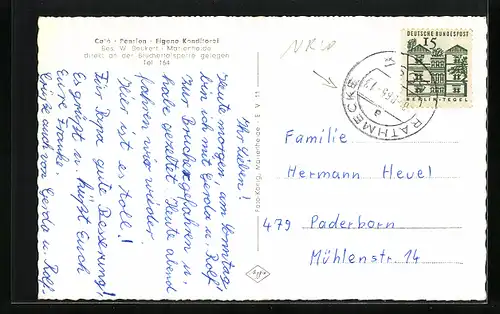 Café · Pension · Eigene Konditorei
Bes. W. Beckert · Marienheide
direkt an der Bruchertalsperre gelegen
Tel. 164
Ihr Lieben!
Heute morgen, am Sonntag,
bin ich mit Gerda u. Rolf
zur Brucher gefahren u.
habe gezeltet. Heute abend
fahren wir wieder.
Hier ist es toll!
Für Papa gute Besserung!
Es grüßt u. küßt Euch
Eure Frauke.
Grüße auch von Gerda u. Rolf.
Foto-König, Marienheide
NRW
RATHMECKE
a
DEUTSCHE BUNDESPOST
15
BERLIN-TEGEL
Familie
Hermann Hevel
479 Paderborn
Mühlenstr. 14